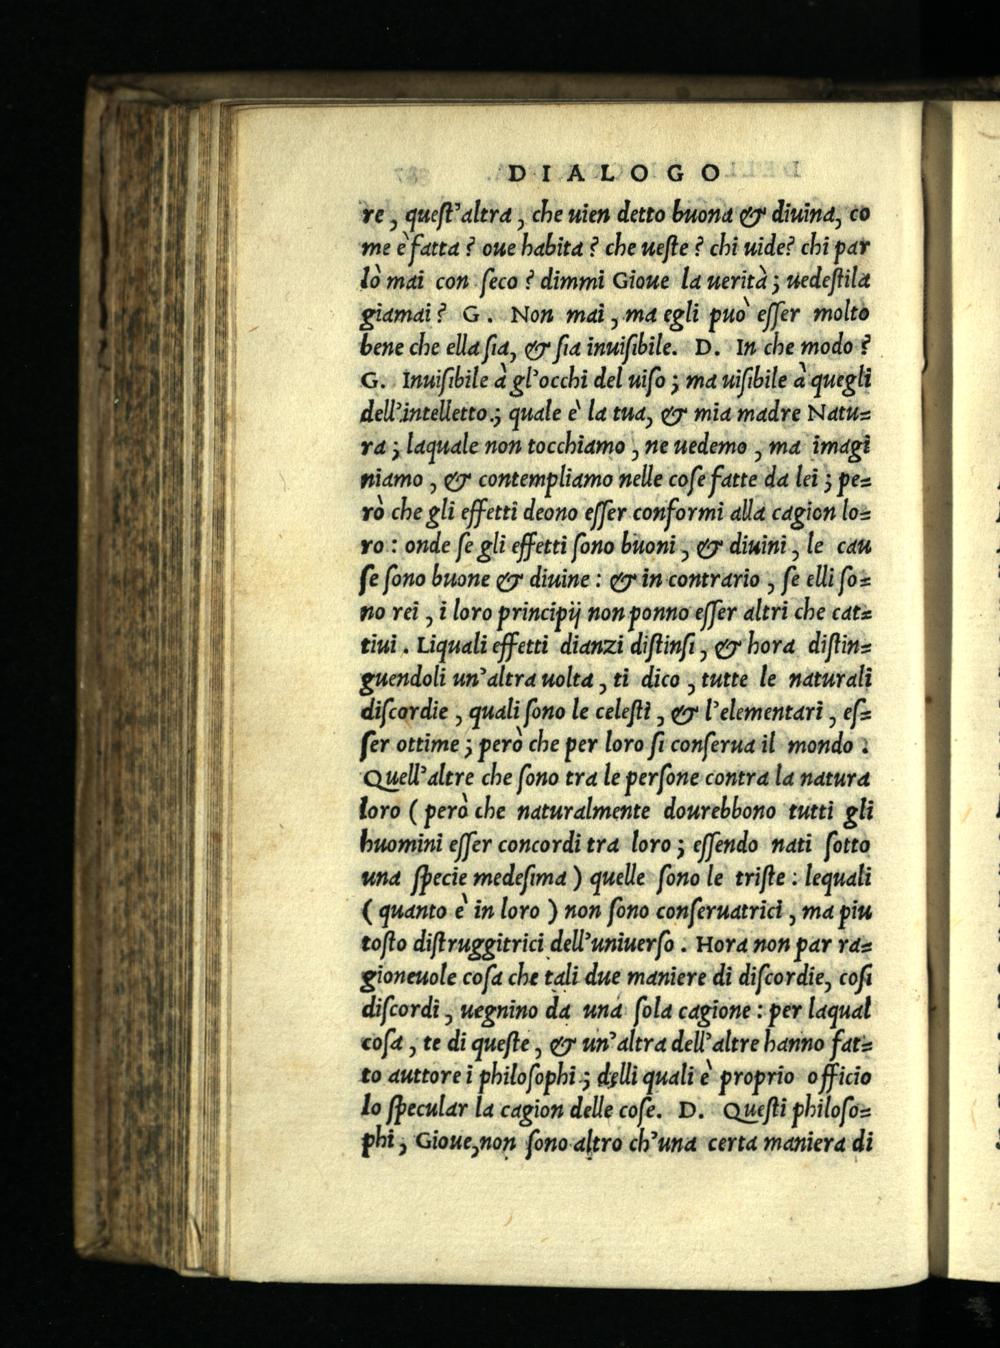 DIALOGO
re, quest'altra, che uien detto buona & diuina, co
me è fatta? oue habita? che ueste? chi uide? chi par
lò mai con seco? dimmi Gioue la uerità; uedestila
giamai? G. Non mai, ma egli può esser molto
bene che ella sia, & sia inuisibile. D. In che modo?
G. Inuisibile à gl'occhi del uiso; ma uisibile à quegli
dell'intelletto; quale è la tua, & mia madre Natu=
ra; laquale non tocchiamo, ne uedemo, ma imagi
niamo, & contempliamo nelle cose fatte da lei; pe=
rò che gli effetti deono esser conformi alla cagion lo=
ro: onde se gli effetti sono buoni, & diuini, le cau
se sono buone & diuine: & in contrario, se elli so=
no rei, i loro principij non ponno esser altri che cat=
tiui. Liquali effetti dianzi distinsi, & hora distin=
guendoli un'altra uolta, ti dico, tutte le naturali
discordie, quali sono le celesti, & l'elementari, es=
ser ottime; però che per loro si conserua il mondo.
Quell'altre che sono tra le persone contra la natura
loro (però che naturalmente dourebbono tutti gli
huomini esser concordi tra loro; essendo nati sotto
una specie medesima) quelle sono le triste: lequali
(quanto è in loro) non sono conseruatrici, ma piu
tosto distruggitrici dell'uniuerso. Hora non par ra=
gioneuole cosa che tali due maniere di discordie, cosi
discordi, uegnino da una sola cagione: per laqual
cosa, te di queste, & un'altra dell'altre hanno fat=
to auttore i philosophi; delli quali è proprio officio
lo specular la cagion delle cose. D. Questi philoso=
phi, Gioue, non sono altro ch'una certa maniera di